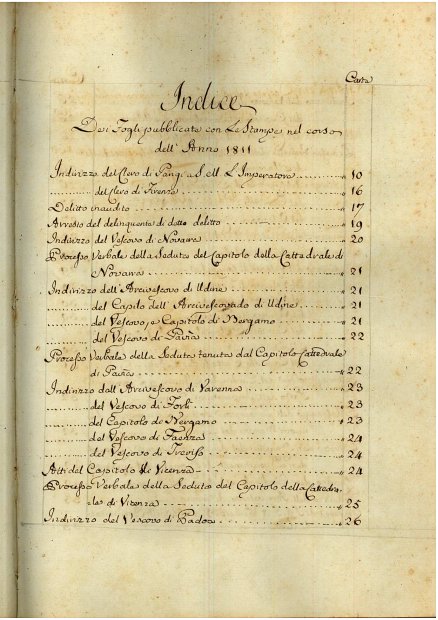 Carta
Indice
Dei Fogli pubblicati con Le Stampe nel corso
dell'Anno 1811
Indirizzo del Clero di Parigi a S. M. L'Imperatore 10
del Clero di Firenze 16
Delitto inaudito 17
Arresto del delinquente di detto delitto 19
Indirizzo del Vescovo di Novara 20
Processo Verbale della Seduta del Capitolo della Cattedrale di
Novara 21
Indirizzo dell'Arcivescovo di Udine 21
del Capitolo dell'Arcivescovado di Udine 21
del Vescovo, e Capitolo di Bergamo 21
del Vescovo di Pavia 22
Processo Verbale della Seduta tenuta dal Capitolo Cattedrale
di Pavia 22
Indirizzo dall'Arcivescovo di Ravenna 23
del Vescovo di Forlì 23
del Capitolo di Bergamo 23
del Vescovo di Faenza 24
del Vescovo di Treviso 24
Atti del Capitolo di Vicenza 24
Processo Verbale della Seduta del Capitolo della Cattedra-
le di Vicenza 25
Indirizzo del Vescovo di Padova 26